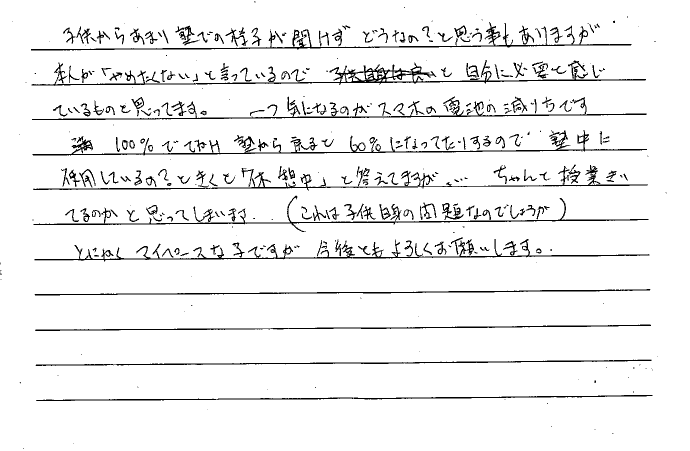 子供からあまり塾での様子が聞けず どうなの?と思う事もありますが
本人が「やめたくない」と言っているので 子供自身は良いと 自分に必要と感じ
ているものと思ってます。 一つ気になるのがスマホの電池の減りです
100%ででかけ 塾から戻ると 60%になってたりするので 塾中に
使用しているの?ときくと「休憩中」と答えてますが、… ちゃんと授業きい
てるのかと思ってしまいます. (これは子供自身の問題なのでしょうが)
とにかく マイペースな子ですが 今後ともよろしくお願いします。